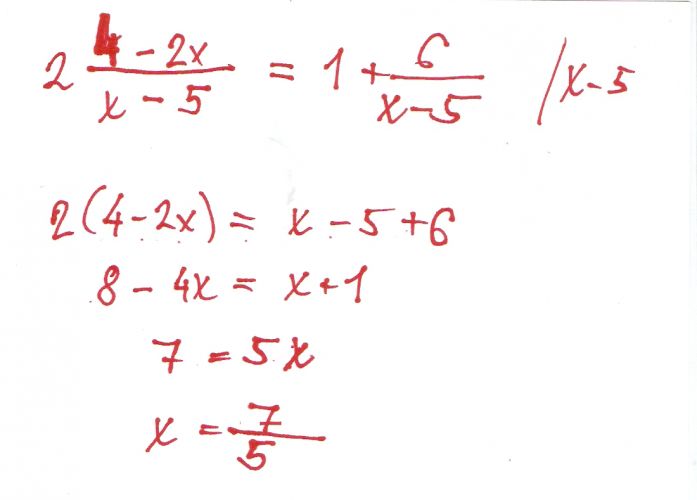 2 (4 - 2x)/(x - 5) = 1 + 6/(x - 5) /x - 5
2(4 - 2x) = x - 5 + 6
8 - 4x = x + 1
7 = 5x
x = 7/5